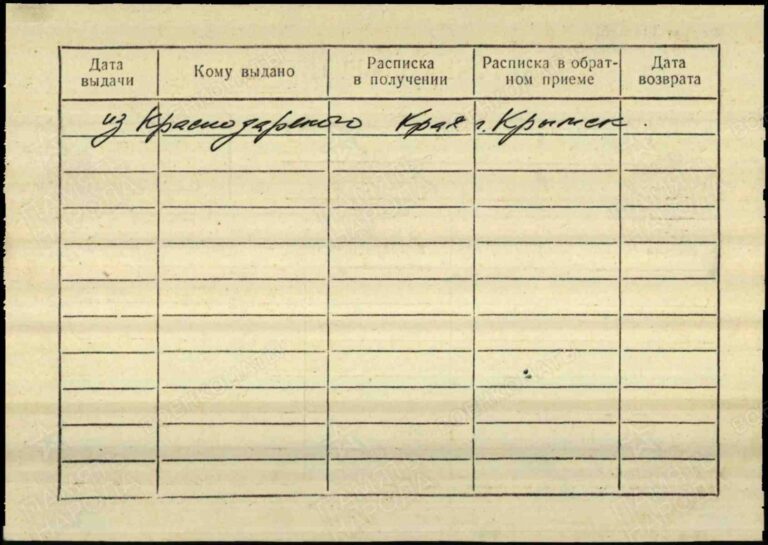 Дата выдачи
Кому выдано
Расписка в получении
Расписка в обрат-
ном приеме
Дата возврата
из Краснодарского Края г. Крымск